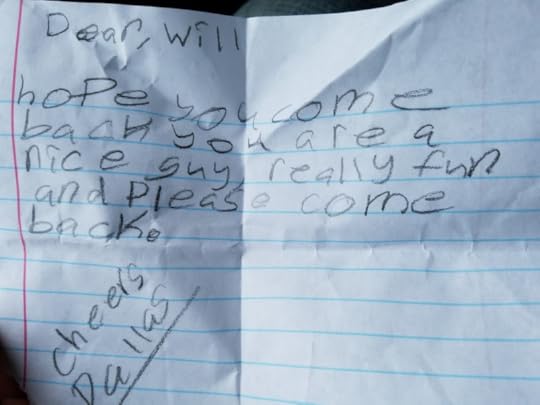 Dear, Will
hope you come
back you are a
nice guy, really fun
and please come
back.
cheers
Dallas